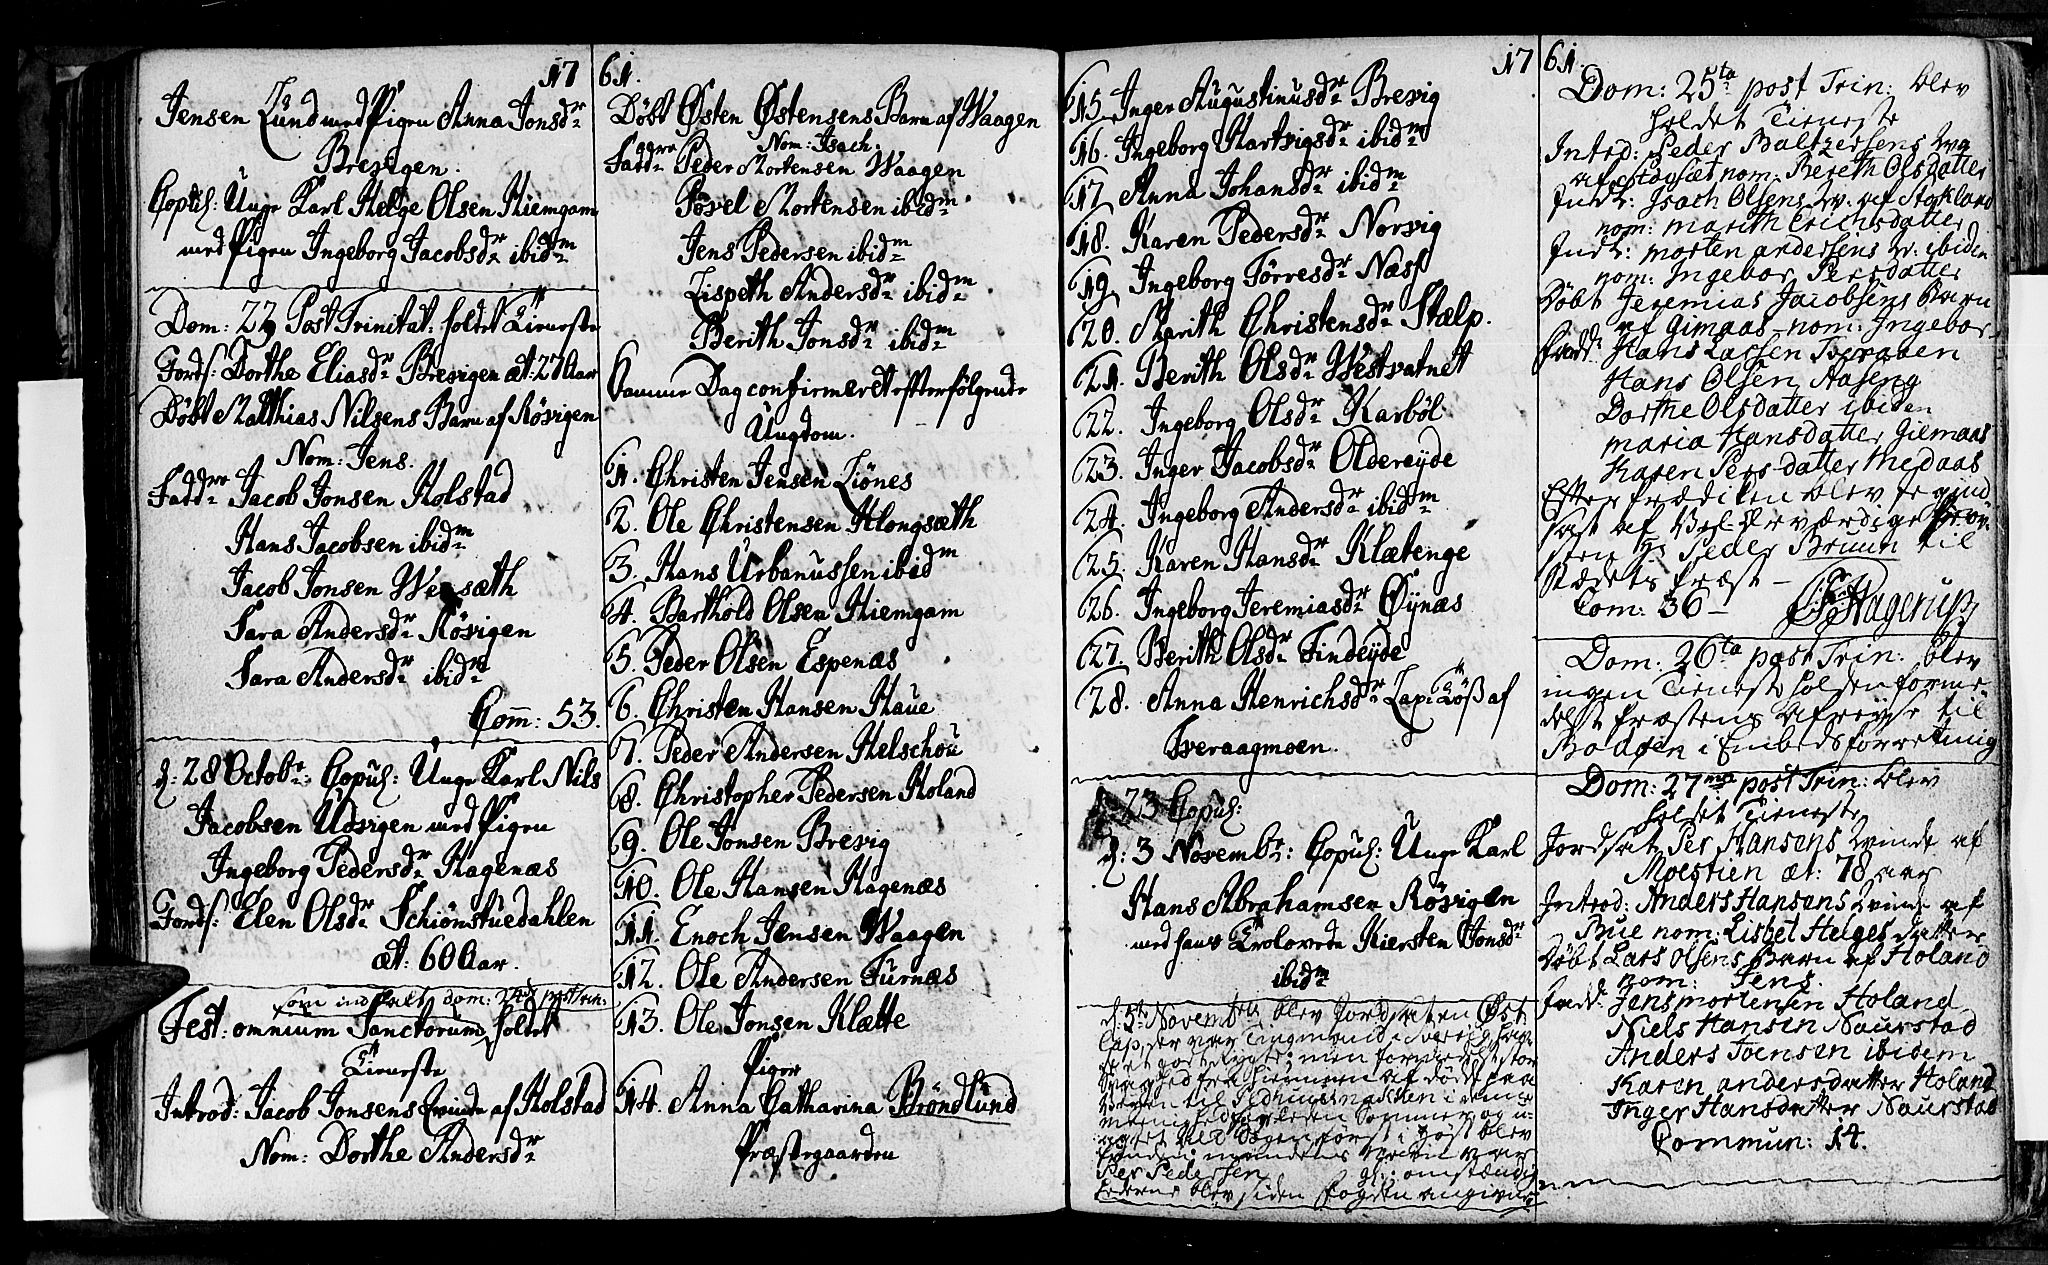 17
Jensen Lund med Pigen Anna Jonsdr
Brevigen.
Copul: Unge Karl Helge Olsen Hiemgam
med Pigen Ingeborg Jacobsdr ibidm
Dom: 22 Post Trinitat: holdet Tieneste
Jords: Dorthe Eliasdr Brevigen æt: 27 Aar
Døbt Matthias Nilsens Barn af Røsvigen
Nom: Jens.
Faddre Jacob Jonsen Holstad
Hans Jacobsen ibidm
Jacob Jonsen Wensæth
Sara Andersdr Røsvigen
Sara Andersdr ibidm
Com: 53.
d: 28 Octobr: Copul: Unge Karl Nils
Jacobsen Udvigen med Pigen
Ingeborg Pedersdr Hagenæs
Jords: Elen Olsdr Schiønstuedahlen
æt: 60 Aar.
som indfalt dom: 24de post trin:
Fest: omnium Sanctorum holdet
Tieneste
Introd: Jacob Jonsens Qvinde af Holstad
Nom: Dorthe Andersdr
61.
Døbt Østen Østensens Barn af Waagen
Nom: Isach.
Faddre Peder Mortensen Waagen
Povel Mortensen ibidm
Jens Pedersen ibidm
Lispeth Andersdr ibidm
Berith Jonsdr ibidm
Samme Dag confirmeret efterfølgende
Ungdom.
1. Christen Jensen Liønes
2. Ole Christensen Hongsæth
3. Hans Urbanussen ibidm
4. Barthold Olsen Hiemgam
5. Peder Olsen Espenæs
6. Christen Hansen Haue
7. Peder Andersen Helschou
8. Christopher Pedersen Holand
9. Ole Jonsen Brevig
10. Ole Hansen Hagenæs
11. Enoch Jensen Waagen
12. Ole Andersen Furnæs
13. Ole Jonsen Klætte
Piger
14. Anna Catharina Brøndlund
Præstegaarden
17
15. Inger Augustinusdr Brevig
16. Ingeborg Hartvigsdr ibidm
17 Anna Johansdr ibidm
18. Karen Pedersdr Norvig
19 Ingeborg Tørresdr Næss
20. Marith Christensdr Stælp.
21. Berith Olsdr Westvatnet
22. Ingeborg Olsdr Karbøl
23. Inger Jacobsdr Oldereyde
24. Ingeborg Andersdr ibidm
25. Karen Hansdr Klætenge
26. Ingeborg Jeremiasdr Øynæs
27. Berith Olsdr Findeyde
28. Anna Henrichsdr Lap: Løss af
Tveraagmoen.
d: 23 Copul:
d: 3 Novembr: Copul: Unge Karl
Hans Abrahamsen Røsvigen
med hans Trolovede Kiersten Jonsdr
ibidm
d: 5te Novembris blev Jordsaten Øst
Lap, der var Tingmand i Sverig, hav-
de et godt Rygte; men formedelst stor
Svaghed fra Hiernen af døde paa
Veyen til
meenighed Sommer og
blev
funden: mandens Navn var
Per Pedersen omstændig
hederne blev siden fogden angivne
61.
Dom: 25ta post Trin: blev
holdet Tieneste
Introd: Peder Baltzersens Qv:
af Støvset nom: Bereth Olsdatter
Indl: Isach Olsens Qv: af Stokland
nom: marith Erichsdatter
Indl: morten andersens Qv: ibiden
nom: Ingebor Persdatter
Døbt Jeremias Jacobsens Barn
af Gimaas nom: Ingebor
Fadd: Hans Lassen Tveraaen
Hans Olsen Aaseng
Dorthe Olsdatter ibiden
maria Hansdatter Giemaas
Karen Persdatter Medaas
Efter Prædiken blev ieg ind-
sat af Vel-Ærværdige Prov-
sten Hr Peder Bruun til
Stedets Præst —
Com: 36 — Hagerup
Dom: 26ta post Trin: blev
ingen Tieneste holden forme-
delst Præstens Afreyse til
Bodøen i Embedsforretning
Dom: 27ma post Trin: blev
holdet Tieneste
Jordsat Per Hansens Qvinde af
Moestien æt: 78 aar
Introd: Anders Hansens Qvinde af
Bue nom: Lisbet Helgesdatter
Døbt Lars Olsens Barn af Holand
nom: Jens.
Fadd: Jens mortensen Holand
Niels Hansen Naurstad
Anders Joensen ibidem
Karen andersdatter Holand
Inger Hansdatter Naurstad
Commun: 14.